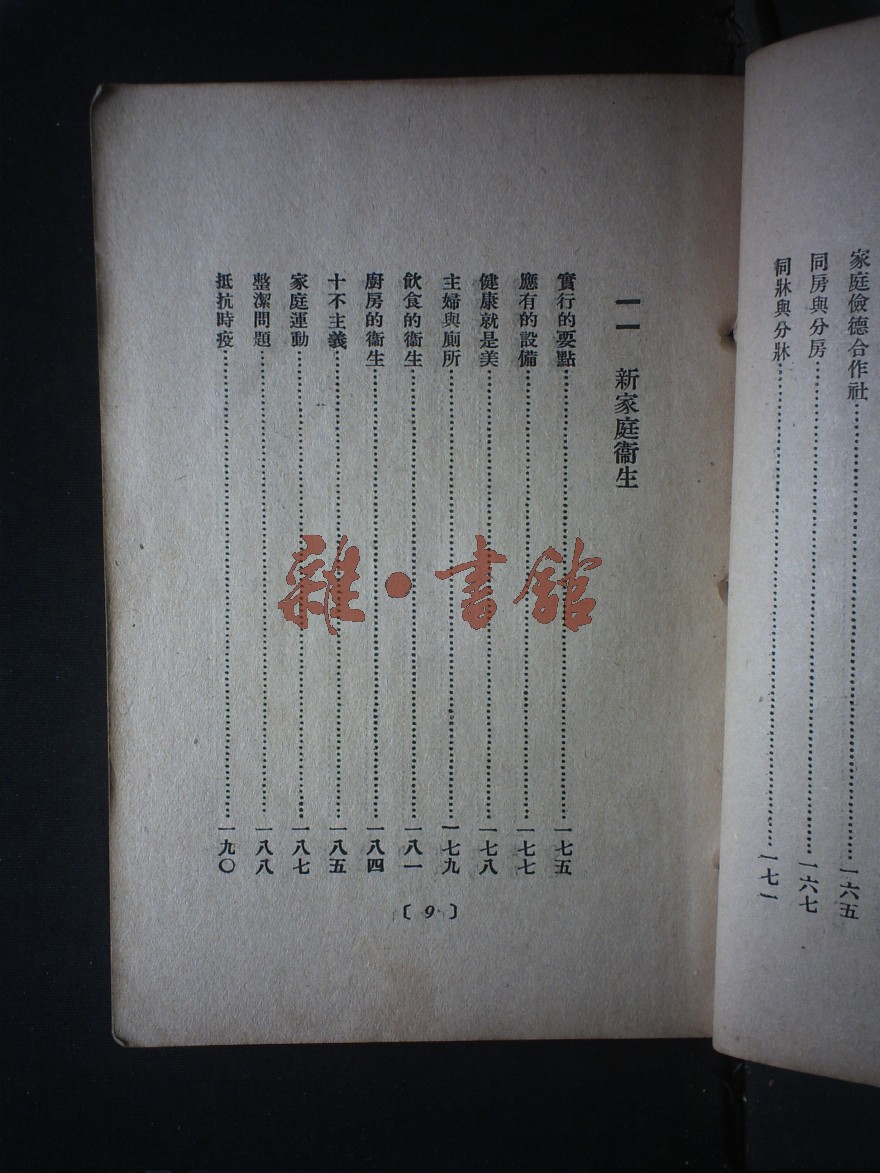 家庭儉德合作社……一六五
同房與分房……一六七
同牀與分牀……一七一
一一 新家庭衞生
實行的要點……一七五
應有的設備……一七七
健康就是美……一七八
主婦與廁所……一七九
飲食的衞生……一八一
廚房的衞生……一八四
十不主義……一八五
家庭運動……一八七
整潔問題……一八八
抵抗時疫……一九〇
〔9〕
雜·書館